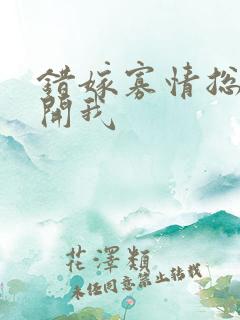 錯嫁寡情总
開我
花澤類
未经同意禁止转载